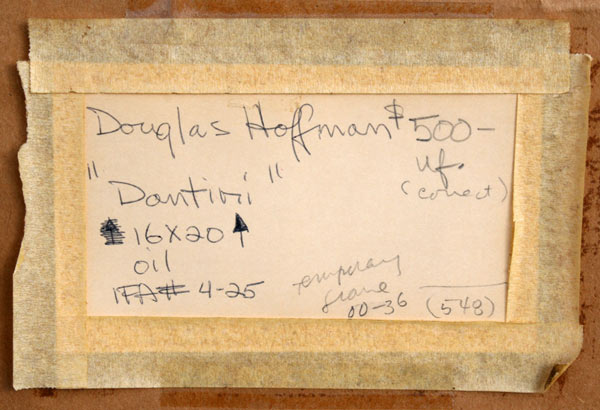 Douglas Hoffman $500-
uf.
(correct)
"Dantivii"
16x20
oil
IFA# 4-25
temporary
frame
00-36
(548)